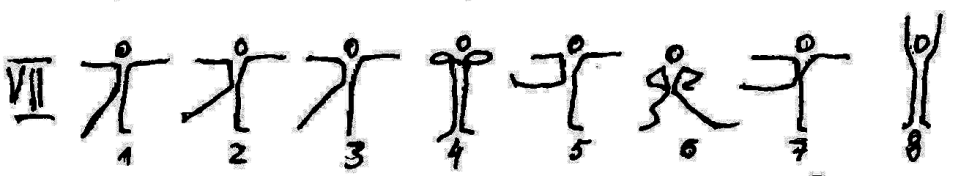 VII
1 2 3 4 5 6 7 8